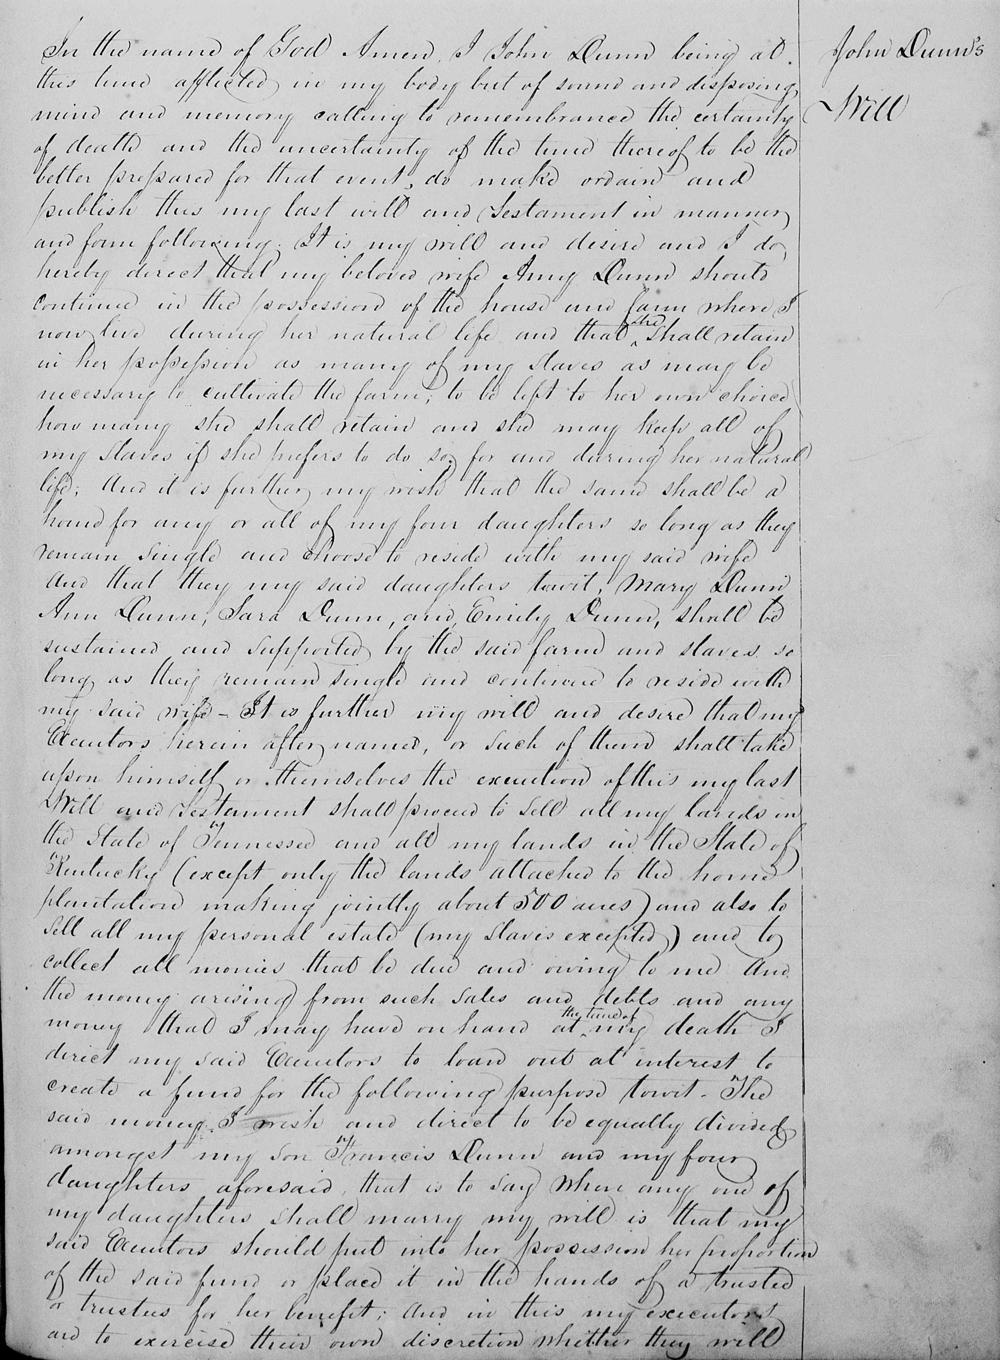 In the name of God Amen, I John Dunn being at
this time afflicted in my body but of sound and disposing
mind and memory calling to remembrance the certainty
of death and the uncertainty of the time thereof to be the
better prepared for that event, do make ordain and
publish this my last will and Testament in manner
and form following. It is my will and desire and I do
hereby direct that my beloved wife Amy Dunn should
continue in the possession of the house and farm where I
now live during her natural life and that she shall retain
in her possession as many of my slaves as may be
necessary to cultivate the farm; to be left to her own choice
how many she shall retain and she may keep all of
my slaves if she prefers to do so, for and during her natural
life; And it is further my wish that the same shall be a
home for any or all of my four daughters so long as they
remain single and choose to reside with my said wife
and that they my said daughters towit, Mary Dunn
Ann Dunn, Sara Dunn, and, Emily Dunn, shall be
sustained and supported by the said farm and slaves so
long as they remain single and continue to reside with
my said wife - It is further my will and desire that my
Executors herein after named, or such of them shall take
upon himself or themselves the execution of this my last
Will and Testament shall proceed to sell all my lands in
the State of Tennessee and all my lands in the State of
Kentucky (except only the lands attached to the home
plantation making jointly about 500 acres) and also to
sell all my personal estate (my slaves excepted) and to
collect all monies that be due and owing to me And
the money arising from such sales and debts and any
money that I may have on hand at the time of my death I
direct my said Executors to loan out at interest to
create a fund for the following purpose towit. The
said money I wish and direct to be equally divided
amongst my son Francis Dunn and my four
daughters aforesaid, that is to say where any one of
my daughters shall marry my will is that my
said Executors should put into her possession her proportion
of the said fund or place it in the hands of a trusted
or trustees for her benefit; And in this my executors
are to exercise their own discretion whether they will
John Dunn's
Will